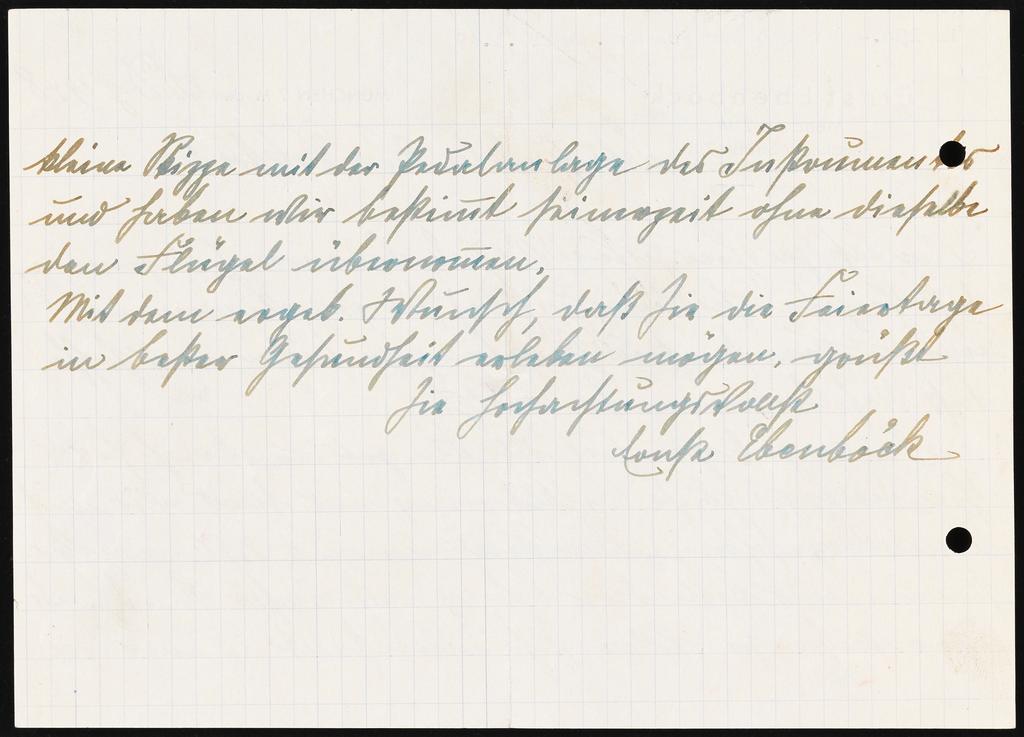 kleine Skizze mit der Pedalanlage des Instrumentes
und haben wir bestim̄t seinerzeit ohne dieselbe
den Flügel übernom̄en.
Mit dem ergeb. Wunsch, daß Sie die Feiertage
in bester Gesundheit erleben mögen, grüßt
Sie hochachtungsvollst
Ernst Ebenböck